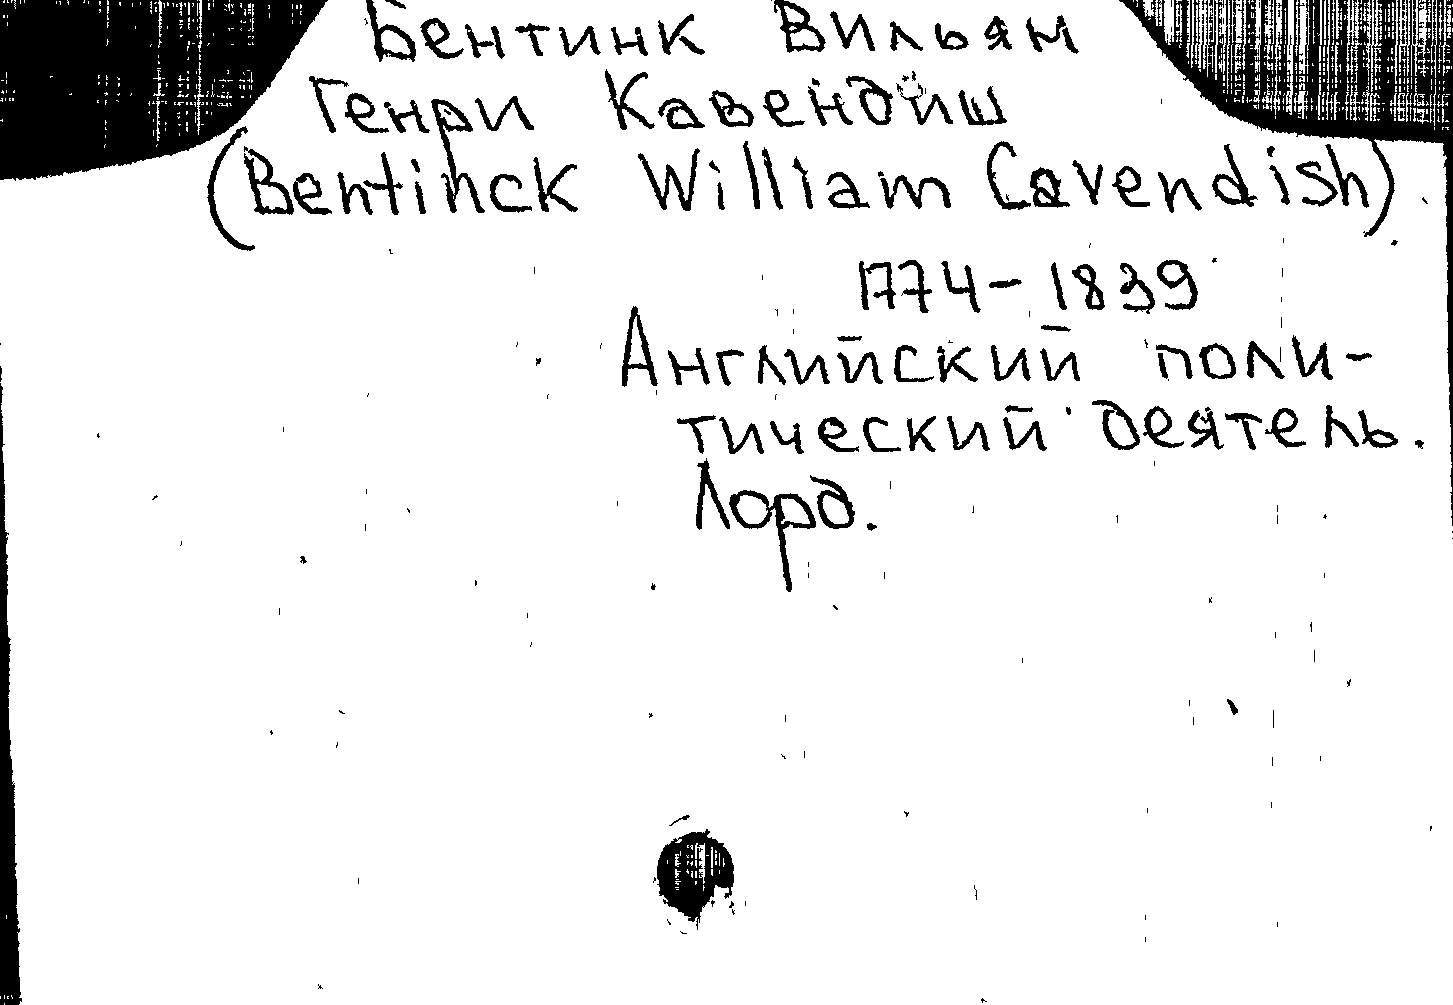 Бентинк Вильям
Генри Кавендиш
(Bentinck William Cavendish)
1774-1839
Английский поли-
тический деятель.
Лорд.